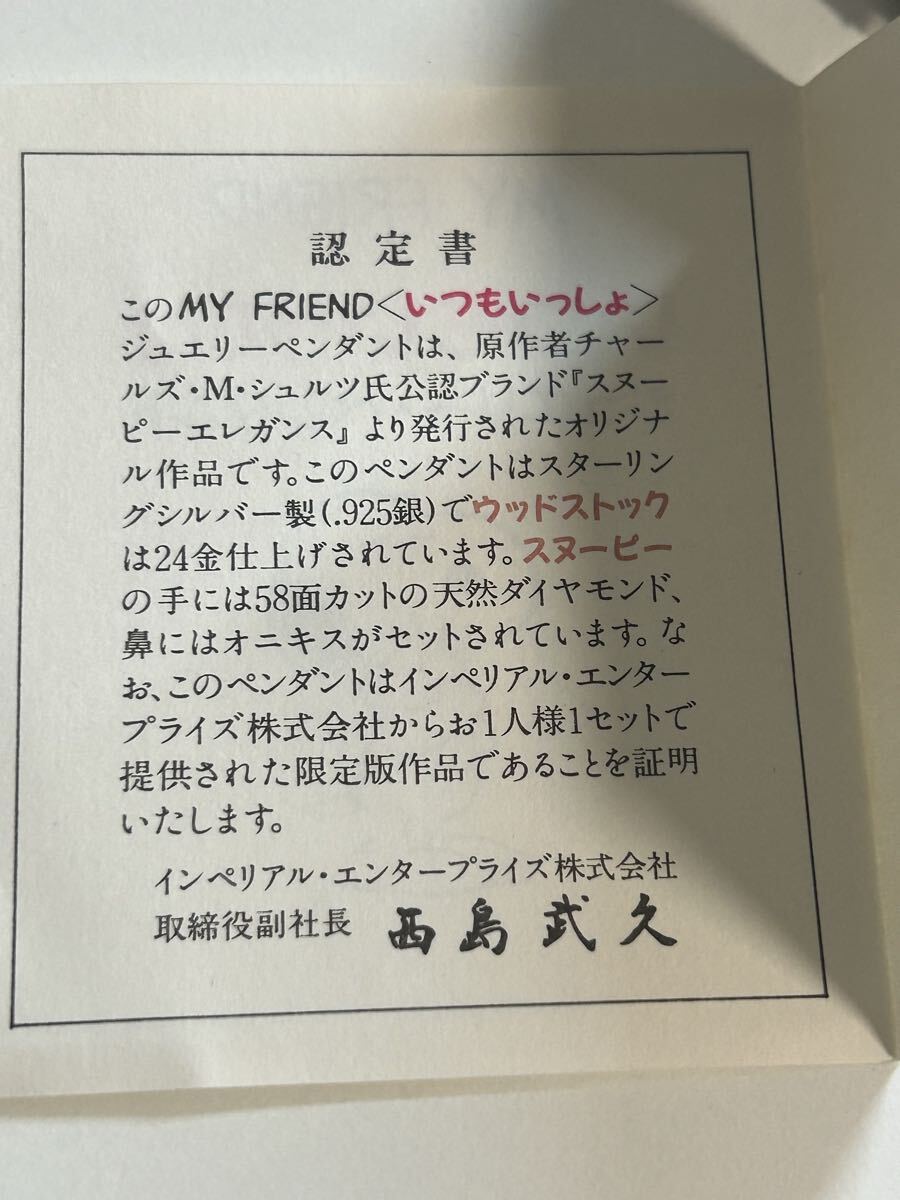 認定書
このMY FRIEND<いつもいっしょ>
ジュエリーペンダントは、原作者チャー
ルズ・M・シュルツ氏公認ブランド『スヌー
ピーエレガンス』より発行されたオリジナ
ル作品です。このペンダントはスターリン
グシルバー製(.925銀)でウッドストック
は24金仕上げされています。スヌーピー
の手には58面カットの天然ダイヤモンド、
鼻にはオニキスがセットされています。な
お、このペンダントはインペリアル・エンター
プライズ株式会社からお1人様1セットで
提供された限定版作品であることを証明
いたします。
インペリアル・エンタープライズ株式会社
取締役副社長 西島武久